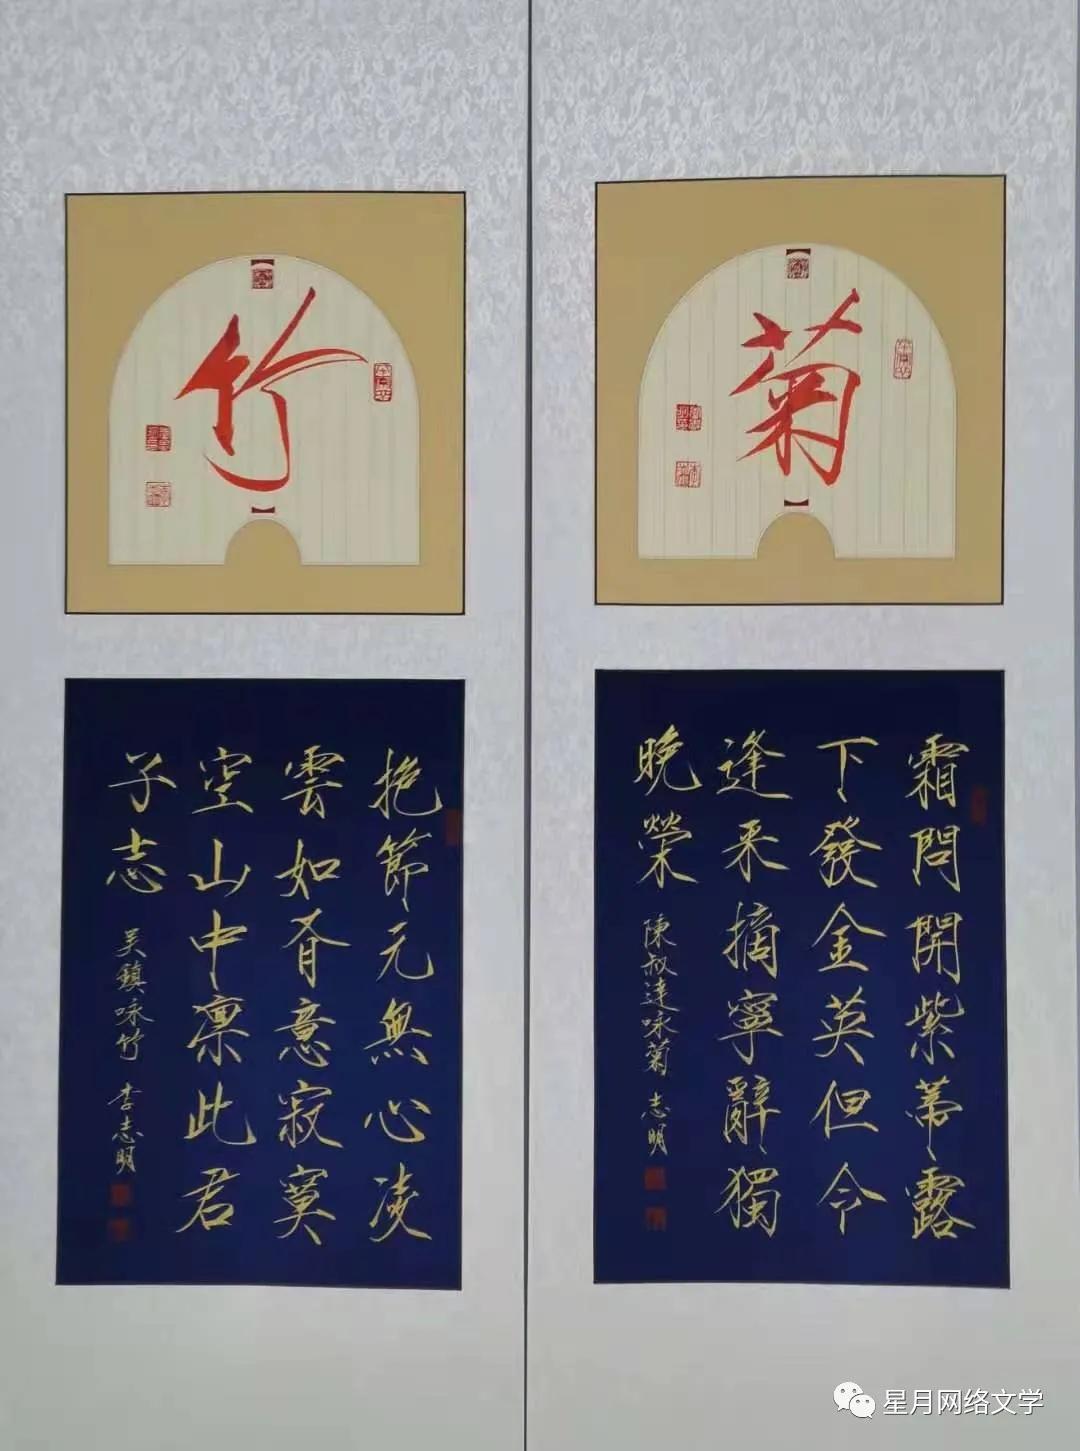 菊
霜問開紫蒂露
下發金英但令
逢采摘寧辭獨
晚榮 陳叔達咏菊 志明
竹
抱節元無心凌
雲如有意寂寞
空山中凛此君
子志 吴鎮咏竹 李志明
星月网络文学